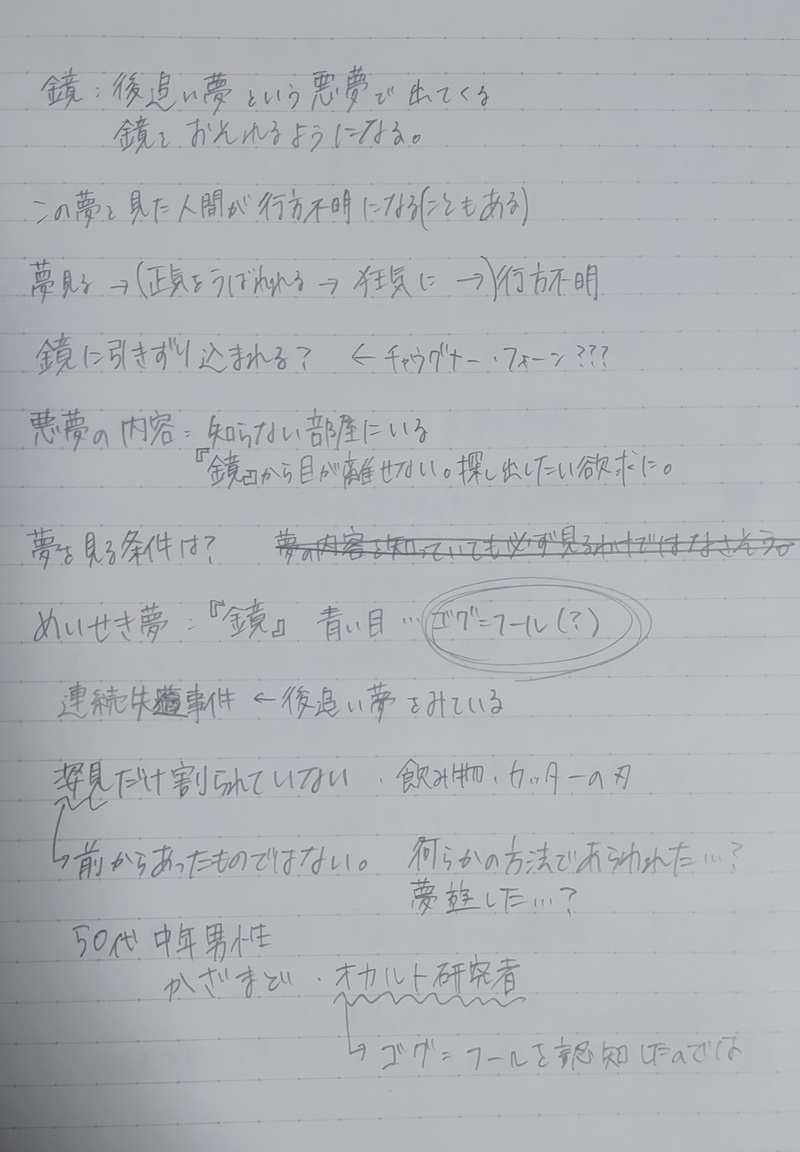 鏡：後追い夢という悪夢で出てくる
鏡をおそれるようになる。
この夢を見た人間が行方不明になる(こともある)
夢見る→(正気をうばわれる→狂気に→)行方不明
鏡に引きずり込まれる？ ←チャウグナー・フォーン???
悪夢の内容=知らない部屋にいる
『鏡』から目が離せない。探し出したい欲求に。
夢を見る条件は？ 夢の内容を知っていても必ず見るわけではなさそう。
めいせき夢：『鏡』 青い目…ゴグ=フール(?)
連続失踪事件←後追い夢をみている
姿見だけ割られていない・飲み物・カッターの刃
→前からあったものではない。 何らかの方法であらわれた…？
夢遊した…？
50代 中年男性
かざまど・オカルト研究者
→ゴグ=フールを認知したのでは